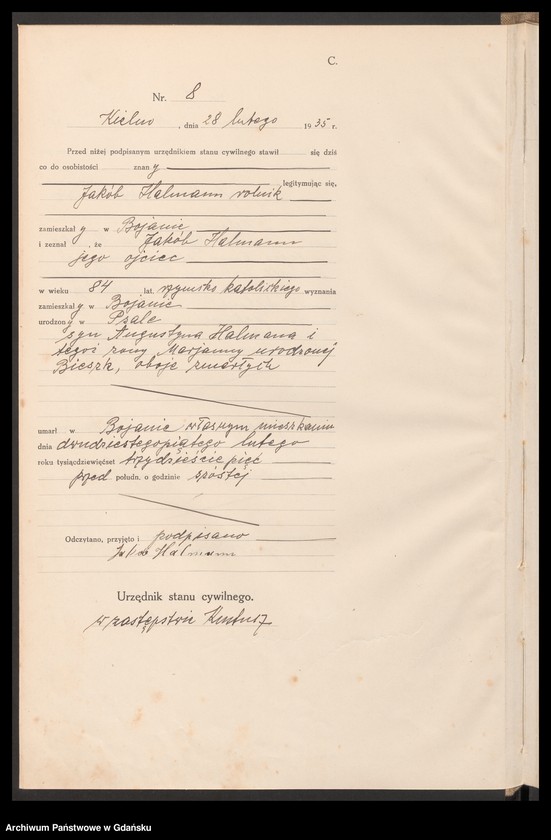 C.
Nr. 8
Kielno , dnia 28 lutego 1935 r.
Przed niżej podpisanym urzędnikiem stanu cywilnego stawił się dziś
co do osobistości znany
legitymując się,
Jakób Halmann rolnik
zamieszkały w Bojanie
i zeznał , że Jakób Halmann
jego ojciec
w wieku 84 lat. rzymsko katolickiego wyznania
zamieszkały w Bojanie
urodzony w
syn Augustyna Halmana i
tegoż żony Marjanny urodzonej
Bieszk, oboje zmarłych
umarł w Bojanie własnym mieszkaniu
dnia dwudziestegopiątego lutego
roku tysiącdziewięćset trzydzieście pięć
przed połudn. o godzinie szóstej
Odczytano, przyjęto i podpisano
Jakób Halmann
Urzędnik stanu cywilnego.
w zastępstwie
Archiwum Państwowe w Gdańsku